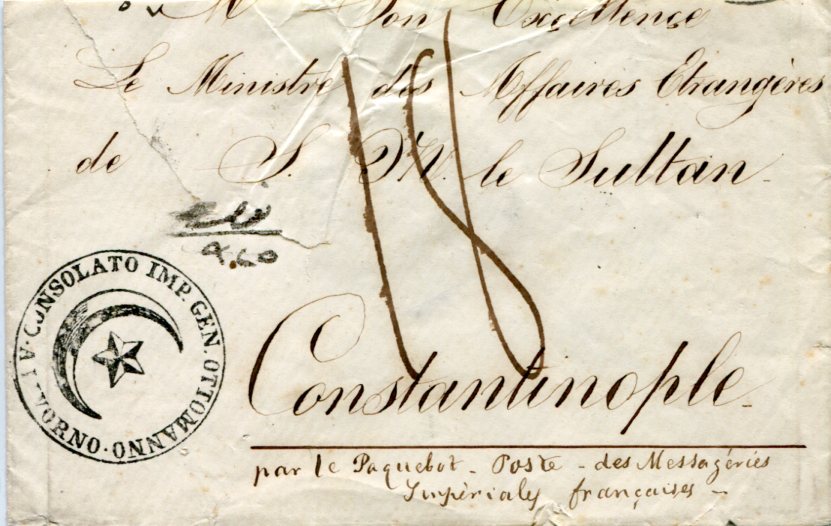 Son Excellence
Le Ministre des Affaires Etrangères
de S. M. le Sultan
18
CONSOLATO IMP. GEN. OTTOMANNO
Constantinople
par le Paquebot-Poste-des Messagéries
Impérialy françaises